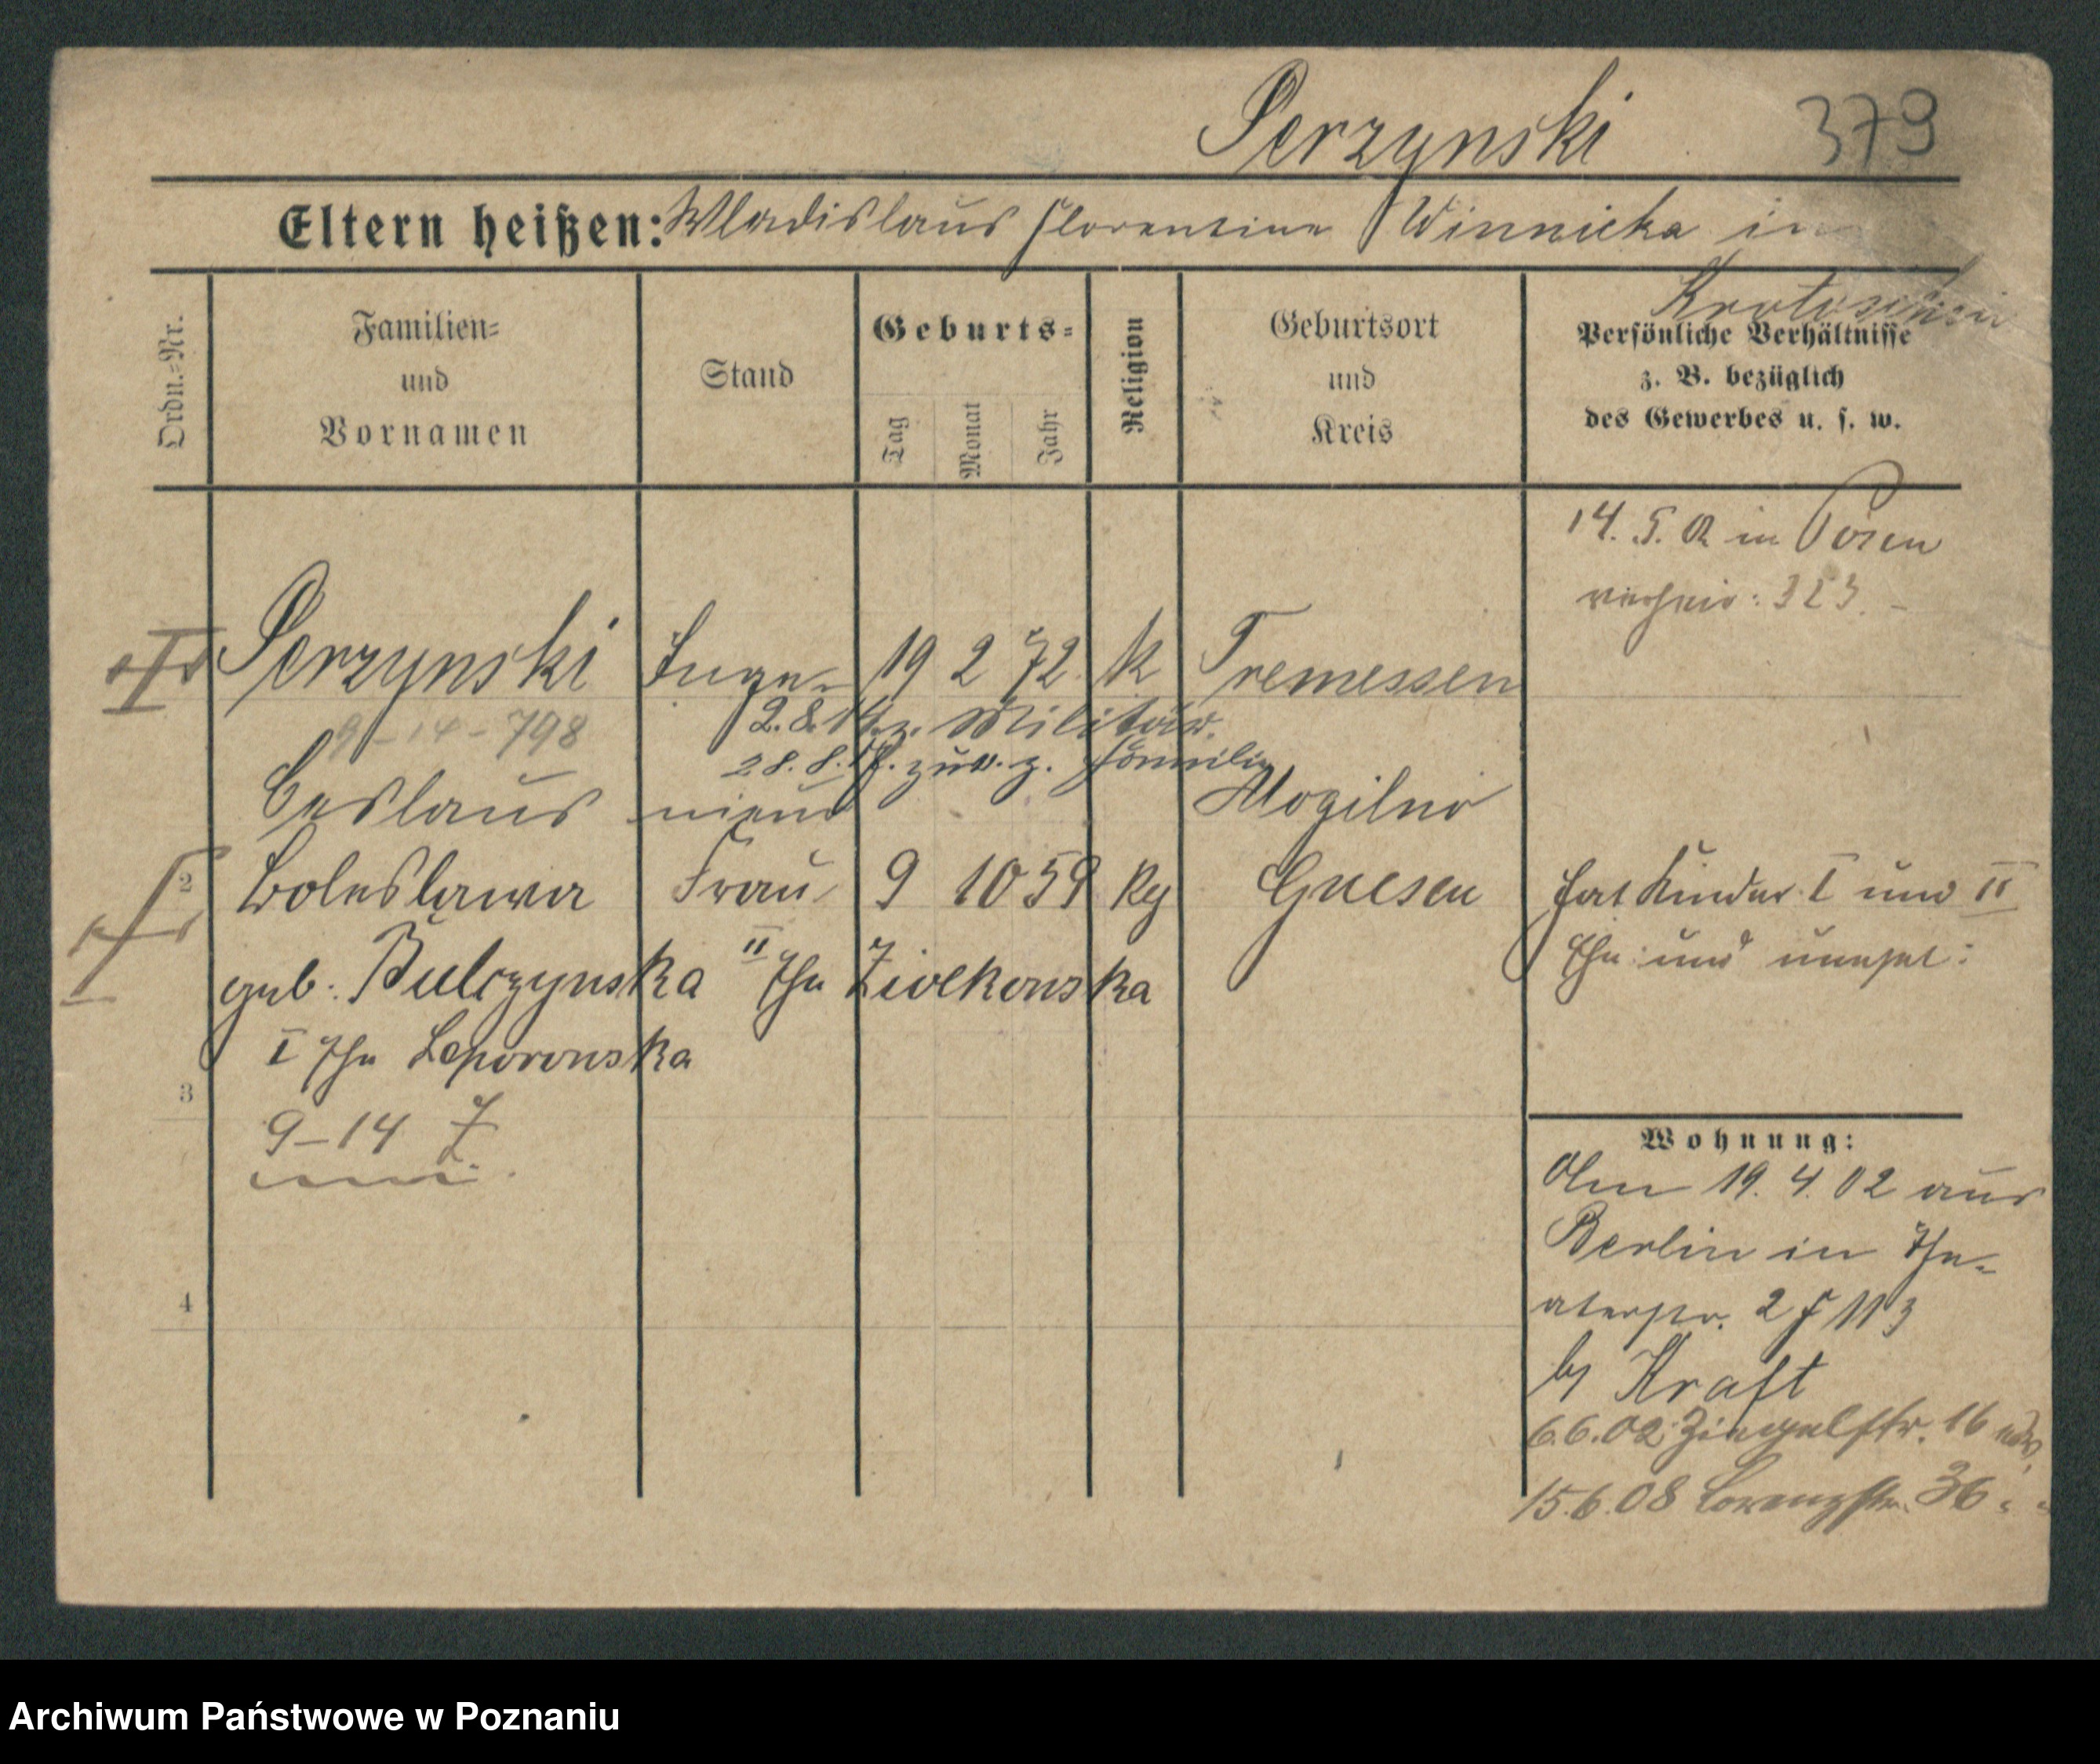 Perzynski 379
Eltern heißen: Wladislaus Florentine Winnicka in
Krotoschin
Ordn.=Nr.
Familien=
und
Vornamen
Stand
Geburts=
Tag
Monat
Jahr
Religion
Geburtsort
und
Kreis
Persönliche Verhältnisse
z. B. bezüglich
des Gewerbes u. s. w.
14. 5. 02 in Posen
verheir: 323.-
Perzynski Inge= 19 2 72 k Tremessen
9-14-798
2.8.14 z. Militär.
28.8. zur. z. Familie
Ceslaus nieur Mogilno
2 Boleslawa Frau 9 10 59 kg Gnesen
hat Kinder I und II
Ehe und unehel:
geb. Bulczynska II Ehe Ziolkowska
I Ehe Leporowska
3
9-14
4
Wohnung:
Am 19. 4. 02 aus
Berlin in The=
aterstr. 2 113
by Kraft
6.6.02 Ziegelstr. 16
15.6.08 Lorenzstr. 36
Archiwum Państwowe w Poznaniu